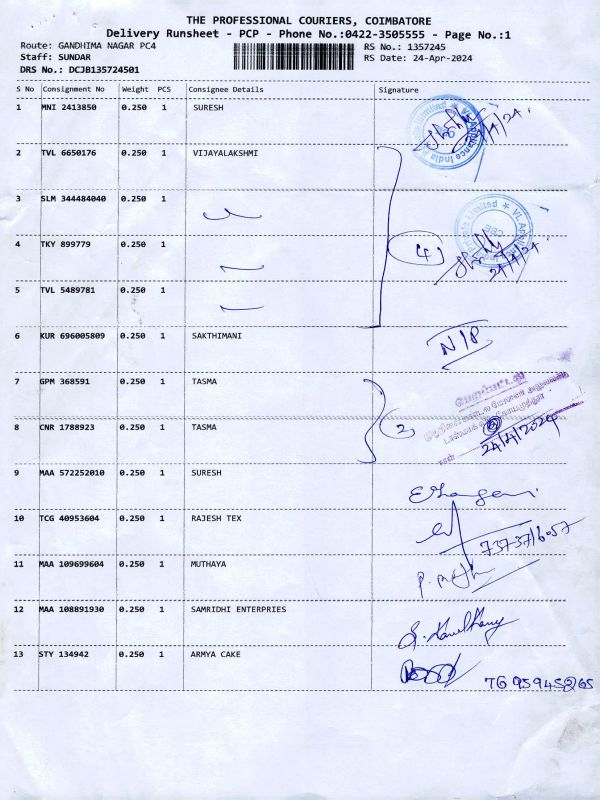 THE PROFESSIONAL COURIERS, COIMBATORE
Delivery Runsheet - PCP - Phone No.:0422-3505555 - Page No.:1
Route: GANDHIMA NAGAR PC4
RS No.: 1357245
Staff: SUNDAR
RS Date: 24-Apr-2024
DRS No.: DCJB135724501
S No Consignment No Weight PCS Consignee Details Signature
1 MNI 2413850 0.250 1 SURESH
2 TVL 6650176 0.250 1 VIJAYALAKSHMI
3 SLM 344484040 0.250 1
4 TKY 899779 0.250 1 (4)
24/4/24
5 TVL 5489781 0.250 1
6 KUR 696005809 0.250 1 SAKTHIMANI N/P
7 GPM 368591 0.250 1 TASMA
8 CNR 1788923 0.250 1 TASMA 2
24/4/2024
9 MAA 572252010 0.250 1 SURESH
10 TCG 40953604 0.250 1 RAJESH TEX
11 MAA 109699604 0.250 1 MUTHAYA
12 MAA 108891930 0.250 1 SAMRIDHI ENTERPRIES
13 STY 134942 0.250 1 ARMYA CAKE